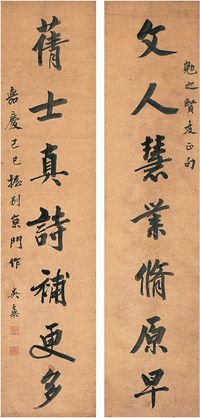 勉之賢友正句
文人慧業脩原早
蒨士真詩補更多
嘉慶己巳握別京門作 吳鼒